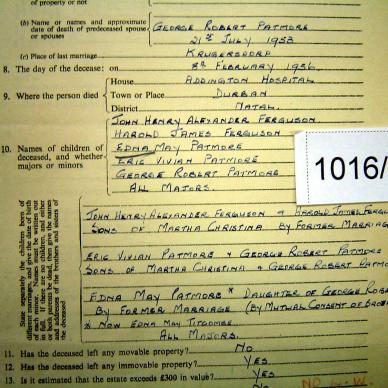 of property or not
(b) Name or names and approximate date of death of predeceased spouse or spouses
GEORGE ROBERT PATMORE
21st JULY 1953
(c) Place of last marriage
KRUGERSDORP
8. The day of the decease: on 8th FEBRUARY 1956.
9. Where the person died
House ADDINGTON HOSPITAL
Town or Place DURBAN
District NATAL.
10. Names of children of deceased, and whether majors or minors
JOHN HENRY ALEXANDER FERGUSON
HAROLD JAMES FERGUSON
EDNA MAY PATMORE
ERIC VIVIAN PATMORE
GEORGE ROBERT PATMORE
ALL MAJORS.
1016/
State separately the children born of
different marriages, and give the date of birth
of each minor. Names must be written out
in full. If there are no children, and either
or both parents be dead, then give the names
and addresses of the brothers and sisters of
the deceased
JOHN HENRY ALEXANDER FERGUSON & HAROLD JAMES FERGU
SONS OF MARTHA CHRISTINA BY FORMER MARRIAG
ERIC VIVIAN PATMORE & GEORGE ROBERT PATMORE
SONS OF MARTHA CHRISTINA & GEORGE ROBERT PATMO
EDNA MAY PATMORE * DAUGHTER OF GEORGE ROB
BY FORMER MARRIAGE (BY MUTUAL CONSENT OF
* NOW EDNA MAY TITCOMBE.
ALL MAJORS.
11. Has the deceased left any movable property? NO
12. Has the deceased left any immovable property? YES
13. Is it estimated that the estate exceeds £300 in value? YES
NO